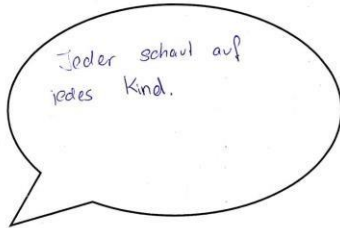 Jeder schaut auf
jedes Kind.